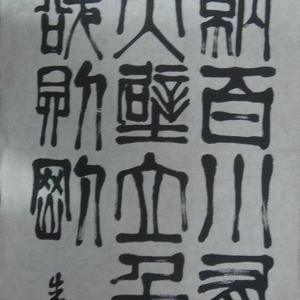 納百川有
大壁立千
欲則剛